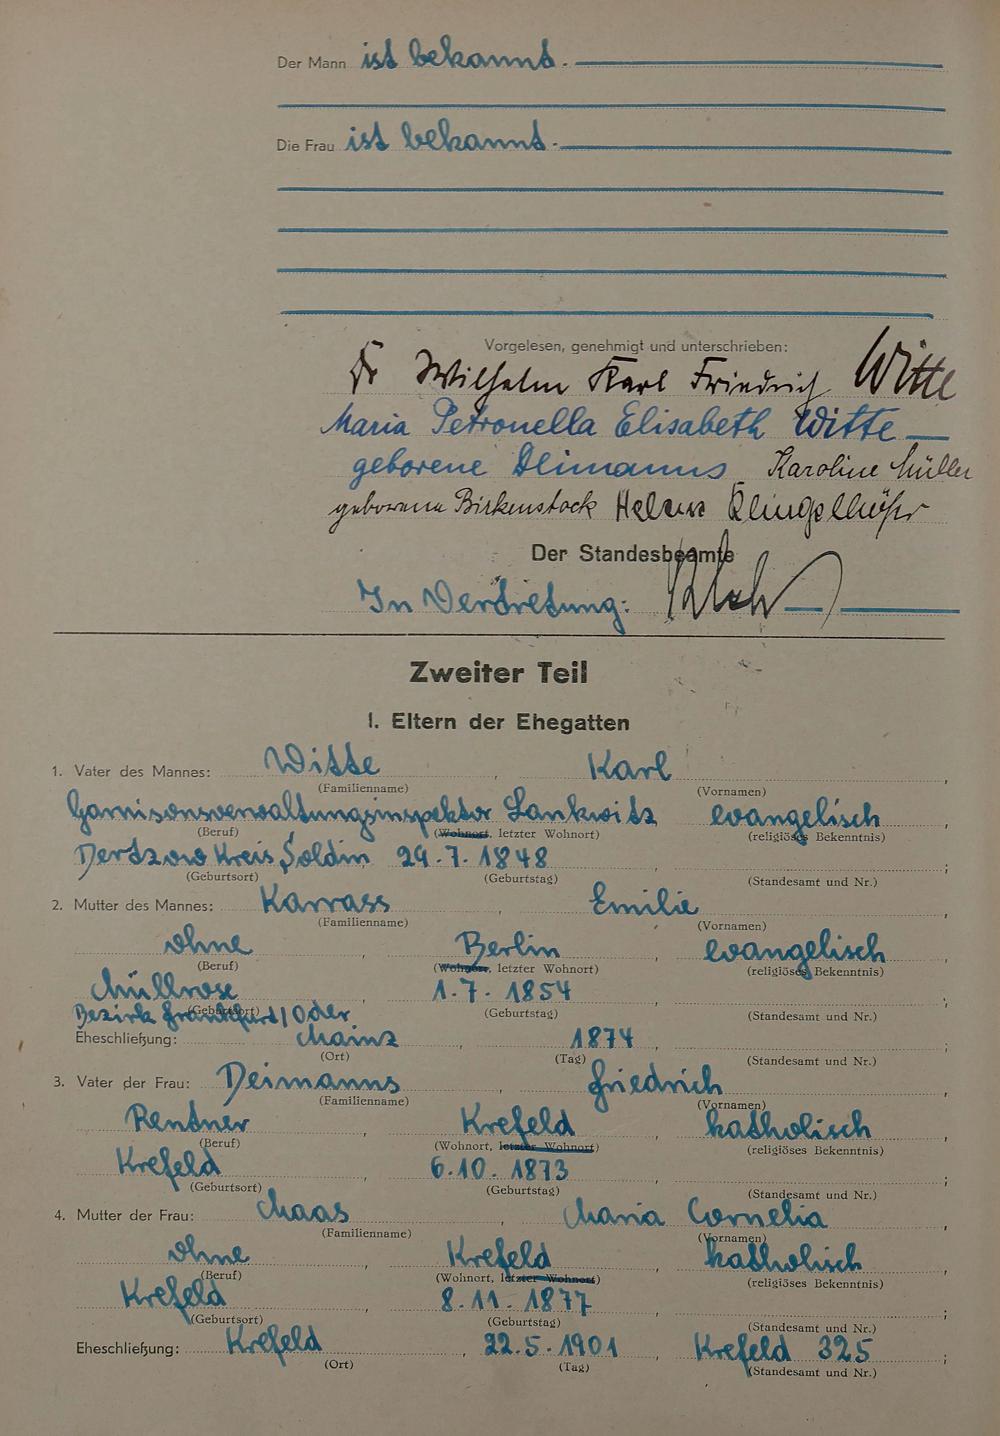 Der Mann ist bekannt.
Die Frau ist bekannt.
Vorgelesen, genehmigt und unterschrieben:
Dr Wilhelm Karl Friedrich Witte
Maria Petronella Elisabeth Witte
geborene Deimanns Karoline Müller
geborene Birkenstock Helene Klingelhöfer
Der Standesbeamte
In Vertretung:
Zweiter Teil
I. Eltern der Ehegatten
1. Vater des Mannes: Witte , Karl ,
(Familienname) (Vornamen)
Garnisonsverwaltungsinspektor Lankwitz evangelisch
(Beruf) (Wohnort, letzter Wohnort) (religiöses Bekenntnis)
Dertzow Kreis Soldin 29.7.1848 ;
(Geburtsort) (Geburtstag) (Standesamt und Nr.)
2. Mutter des Mannes: Karrass , Emilie ,
(Familienname) (Vornamen)
ohne , Berlin , evangelisch
(Beruf) (Wohnort, letzter Wohnort) (religiöses Bekenntnis)
Müllrose 1.7.1854 , ;
(Geburtsort) (Geburtstag) (Standesamt und Nr.)
Bezirk Frankfurt/Oder
Eheschließung: Mainz , 1874 , ;
(Ort) (Tag) (Standesamt und Nr.)
3. Vater der Frau: Deimanns , Friedrich ,
(Familienname) (Vornamen)
Rentner , Krefeld , katholisch
(Beruf) (Wohnort, letzter Wohnort) (religiöses Bekenntnis)
Krefeld , 6.10.1873 , ;
(Geburtsort) (Geburtstag) (Standesamt und Nr.)
4. Mutter der Frau: Maas , Maria Cornelia ,
(Familienname) (Vornamen)
ohne , Krefeld , katholisch
(Beruf) (Wohnort, letzter Wohnort) (religiöses Bekenntnis)
Krefeld , 8.11.1877 , ;
(Geburtsort) (Geburtstag) (Standesamt und Nr.)
Eheschließung: Krefeld , 22.5.1901 , Krefeld 325 ;
(Ort) (Tag) (Standesamt und Nr.)